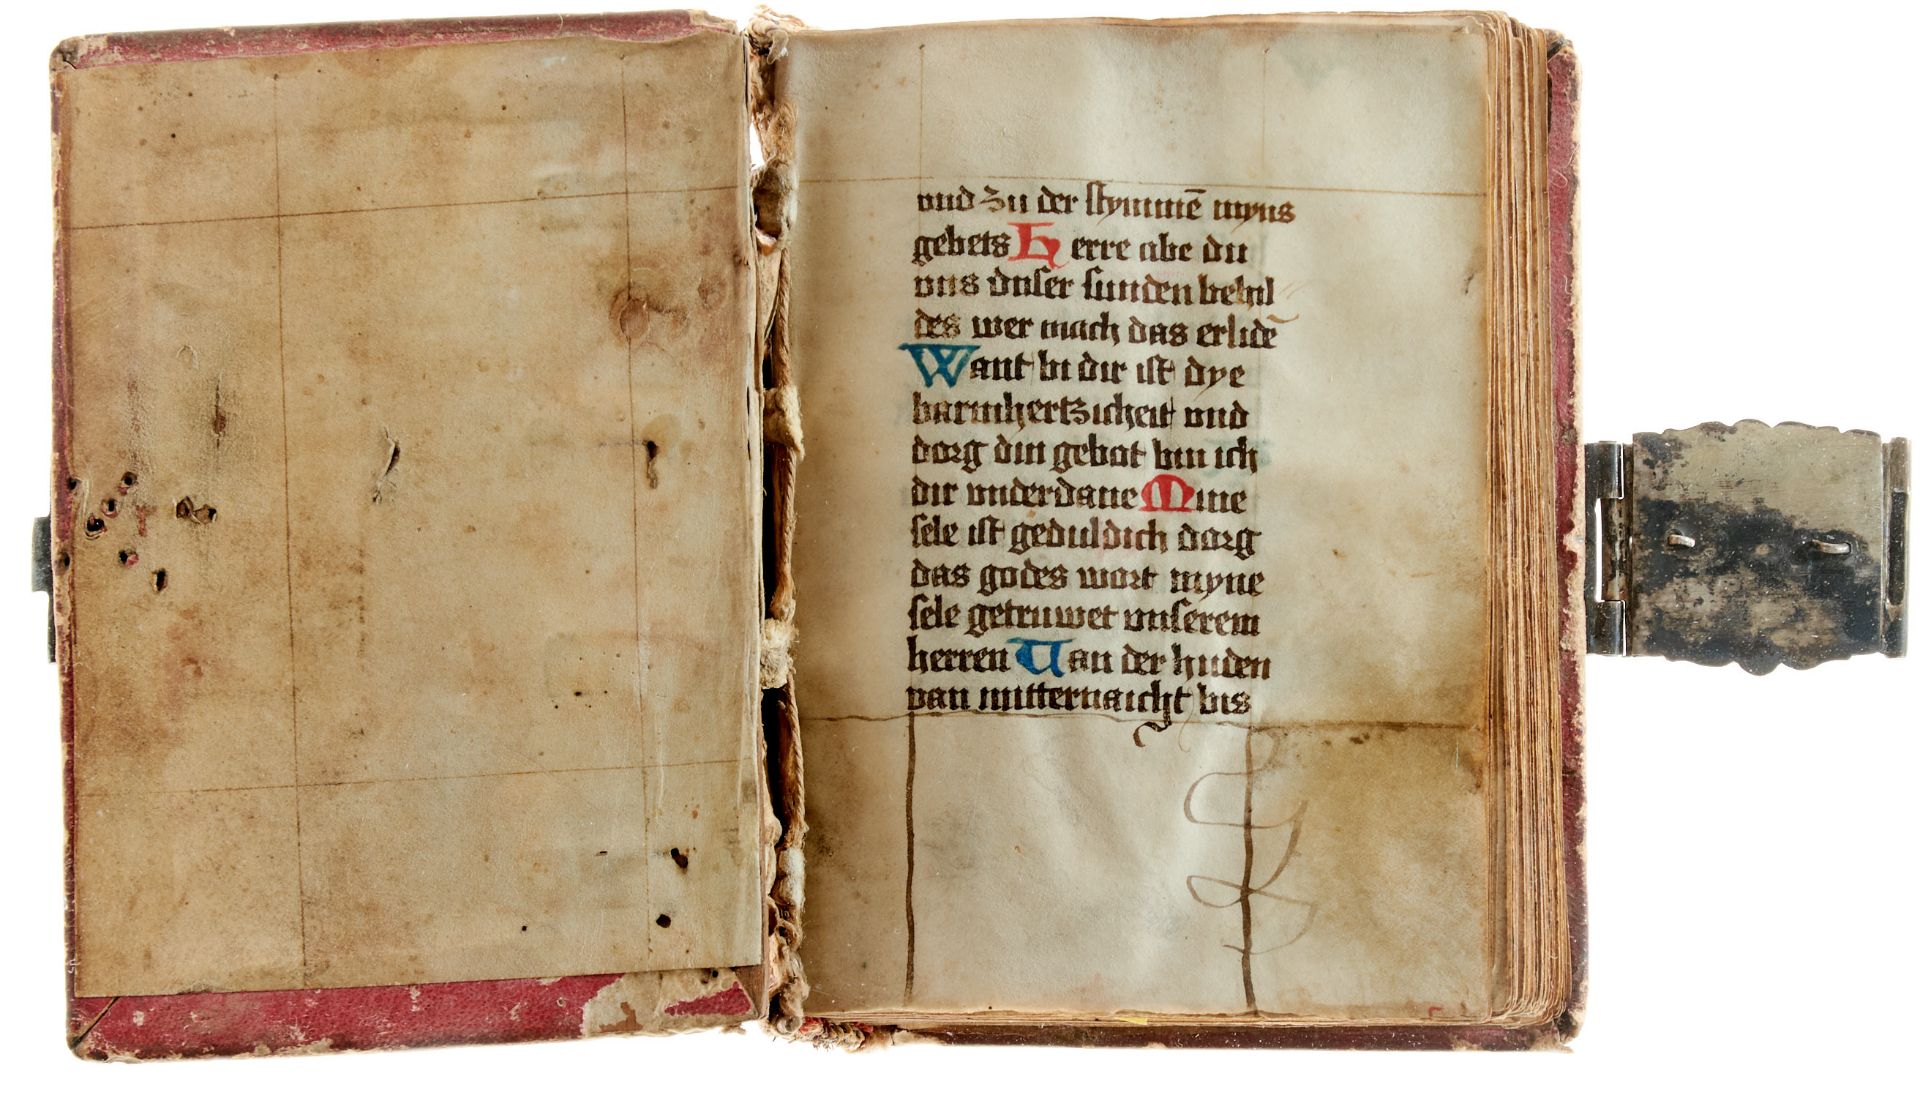 vnd zu der stymmē myns
gebets Herre abe du
vns vnser sunden behil
des wer mach das erlidē
Want bi dir ist dye
barmhertzicheit vnd
dorg din gebot bin ich
dir vnderdane Mine
sele ist geduldich dorg
das godes wort myne
sele getruwet vnserem
herren Uan der huden
van mitternaicht bis